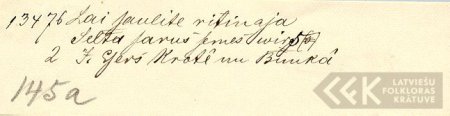 13476 Lai saulite ritinaja
Selta jarus semes wirs
2 J. Gers Krotê un Bunkâ
145a
LATVIEŠU
FOLKLORAS
KRĀTUVE